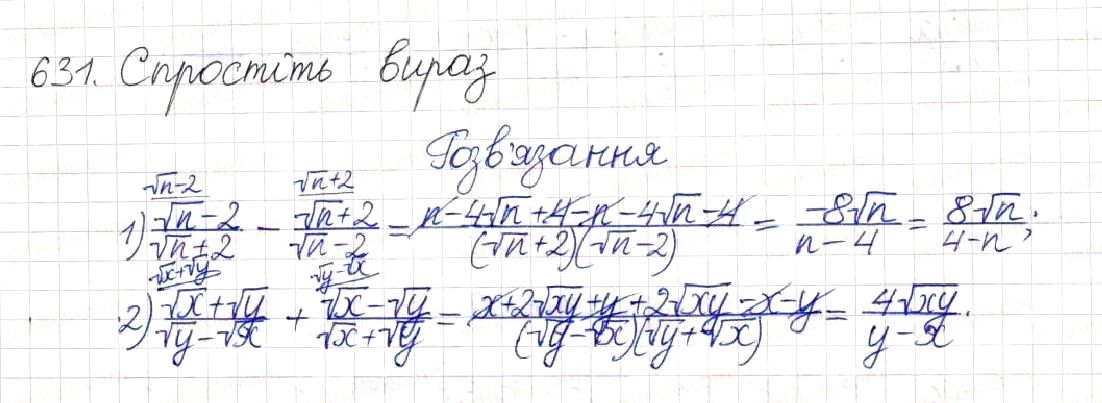 631. Спростіть вираз
Розв'язання
√n-2 √n+2
1) (√n-2)/(√n+2) - (√n+2)/(√n-2) = (n-4√n+4-n-4√n-4)/((√n+2)(√n-2)) = (-8√n)/(n-4) = (8√n)/(4-n);
√x+√y √y-√x
2) (√x+√y)/(√y-√x) + (√x-√y)/(√x+√y) = (x+2√xy+y+2√xy-x-y)/((√y-√x)(√y+√x)) = (4√xy)/(y-x).